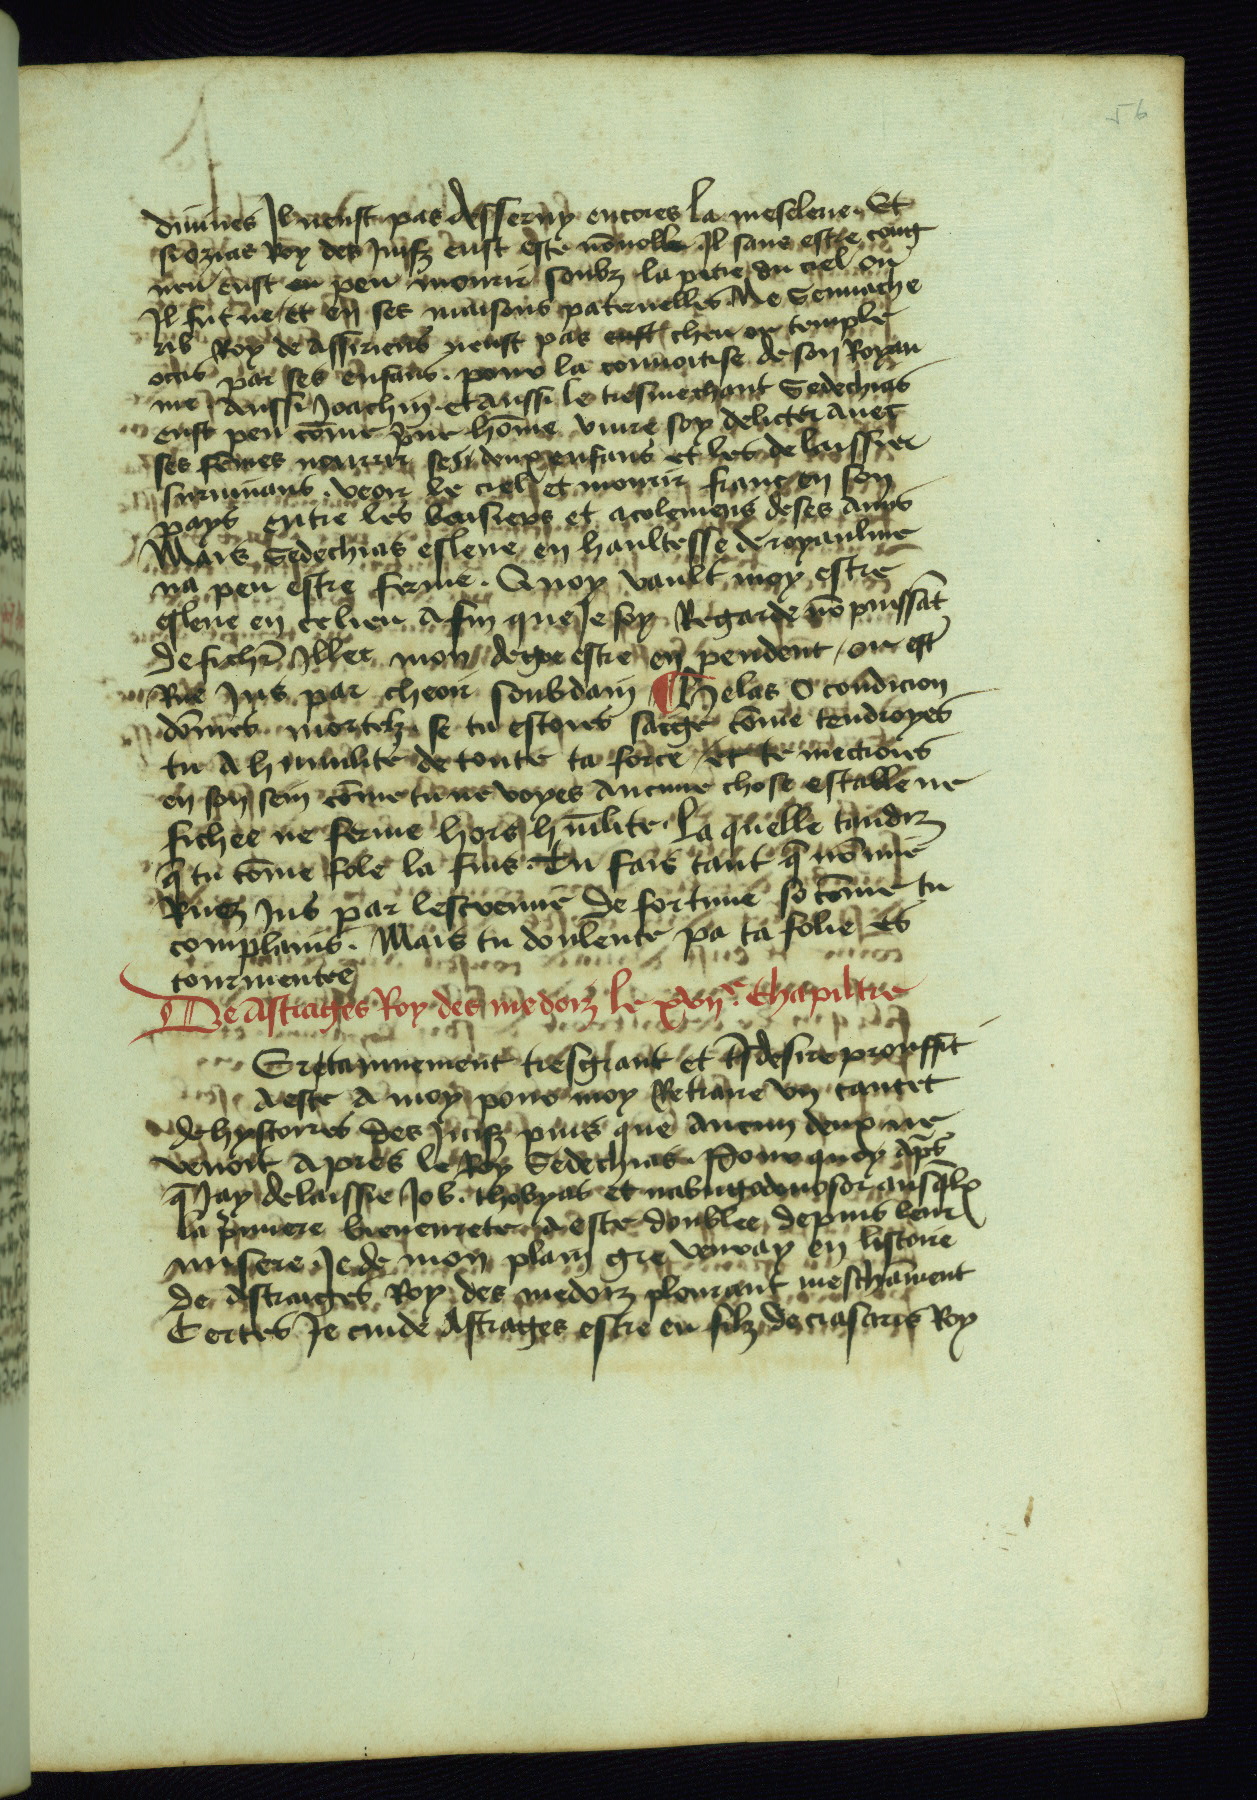 56
diuines Il neust pas desseruy encores la meselerie. Et
si ozias Roy des Juifz eust este nō noble Il sans estre
neu eust eu peu mourir soubz la partie du ciel ou
Il fut ne Et en ses maisons paternelles Ne Sennache
rib Roy de assiriens neust pas cheu ou temple
occis par ses enfans . pour la couuoitise de son Royau
me Aussi Joachin . et aussi le tresmechant Sedechias
eust peu cōme hōme viure soy delicter auec
ses fēmes nourrir ses doux enfans et les delaissier
suruiuans . veoir le ciel et mourir franc en son
pays entre les baisiers et acolemens de ses amis
Mais Sedechias esleue en haultesse de royaulme
na peu estre ferme . Quoy vault moy estre
esleue en ce lieu Afin que Je soy Regarde nō puissāt
de fichr̄ Illec mon degre estre en pendent / ou estr̄
Rue Jus par cheoir soubdain Helas O condicion
dōmes mortelz . se tu estoyes saige cōme tendroyes
tu A humilite de toute ta force et te mectroyes
en son sein cōme tu ne voyes Aucune chose estable ne
fichee ne ferme hors hūilite . La quelle tandiz
q̄ tu cōme fole la fuis . Tu fais tant q̄ nō mie
Ruez Jus par lescreuue de fortune si cōme tu
complains . Mais tu doulente pa ta folie es
tourmentee
De Astiages Roy des medoiz le xvij.e Chapiltre
Certainnement tresgrant et tr̄sdesire prouffit
A este A moy pour moy Retraire Un tantet
de hystoires Des Juifz puis que Aucun deux ne
venoit Apres le Roy Sedechias . Pour quoy ap̄s
q̄ Jay delaissie Job . thobyas et nabugodonosor ausq̄lx
la p̄miere bieneurete A este doublee depuis leur
misere . Je de mon plain gre venray en listoire
de Astiages Roy des medoiz plourant meschāment
Certes Je cuide Astiages estre eu filz de ciasares Roy